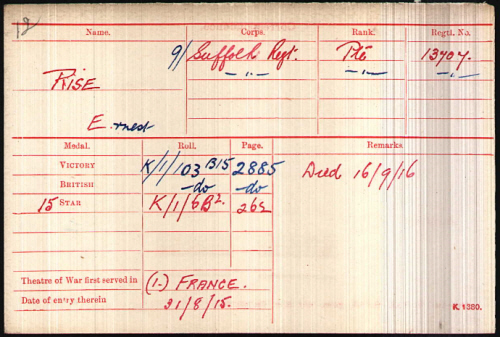 Name. Corps. Rank. Regtl. No.
9/ Suffolk Regt. Pte 13707.
RISE — " — — " —
E. rnest
Medal. Roll. Page. Remarks
VICTORY K/1/103 B15 2885 Died 16/9/16
BRITISH —do —do
15 STAR K/1/6B². 262
Theatre of War first served in (1.) FRANCE.
Date of entry therein 31/8/15.
K. 1380.